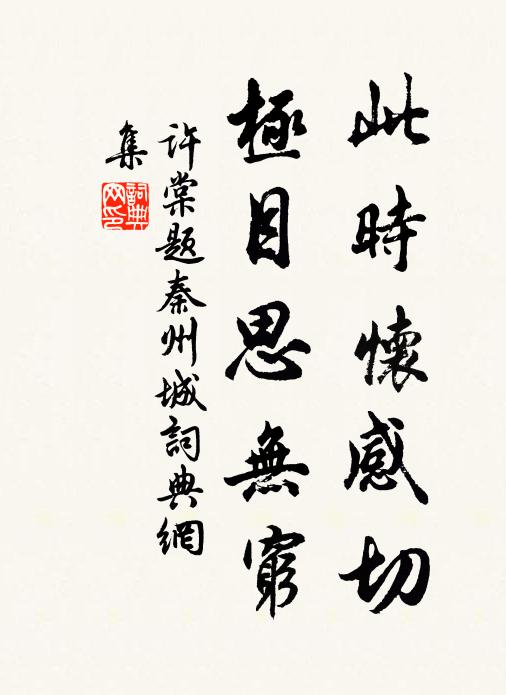 此時懷感切
極目思無窮
許棠題秦州城詞典網
集
詞典
网印